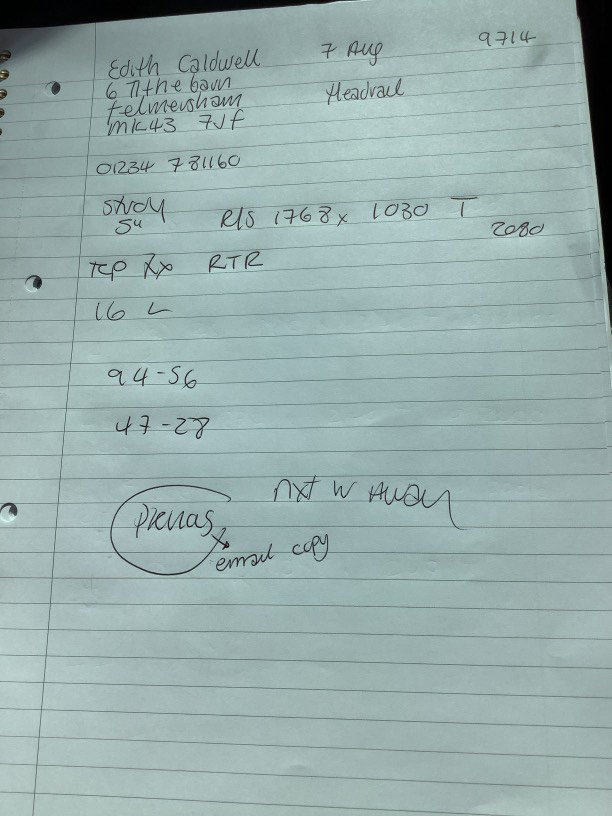 Edith Caldwell 7 Aug 9714
6 Tithe barn
Felmersham Headrail
MK43 7JF
01234 781160
STUDY
54 R/S 1768 x 1030 T
2080
TCP RX RTR
16 L
94-56
47-28
nxt w AWAY
email copy